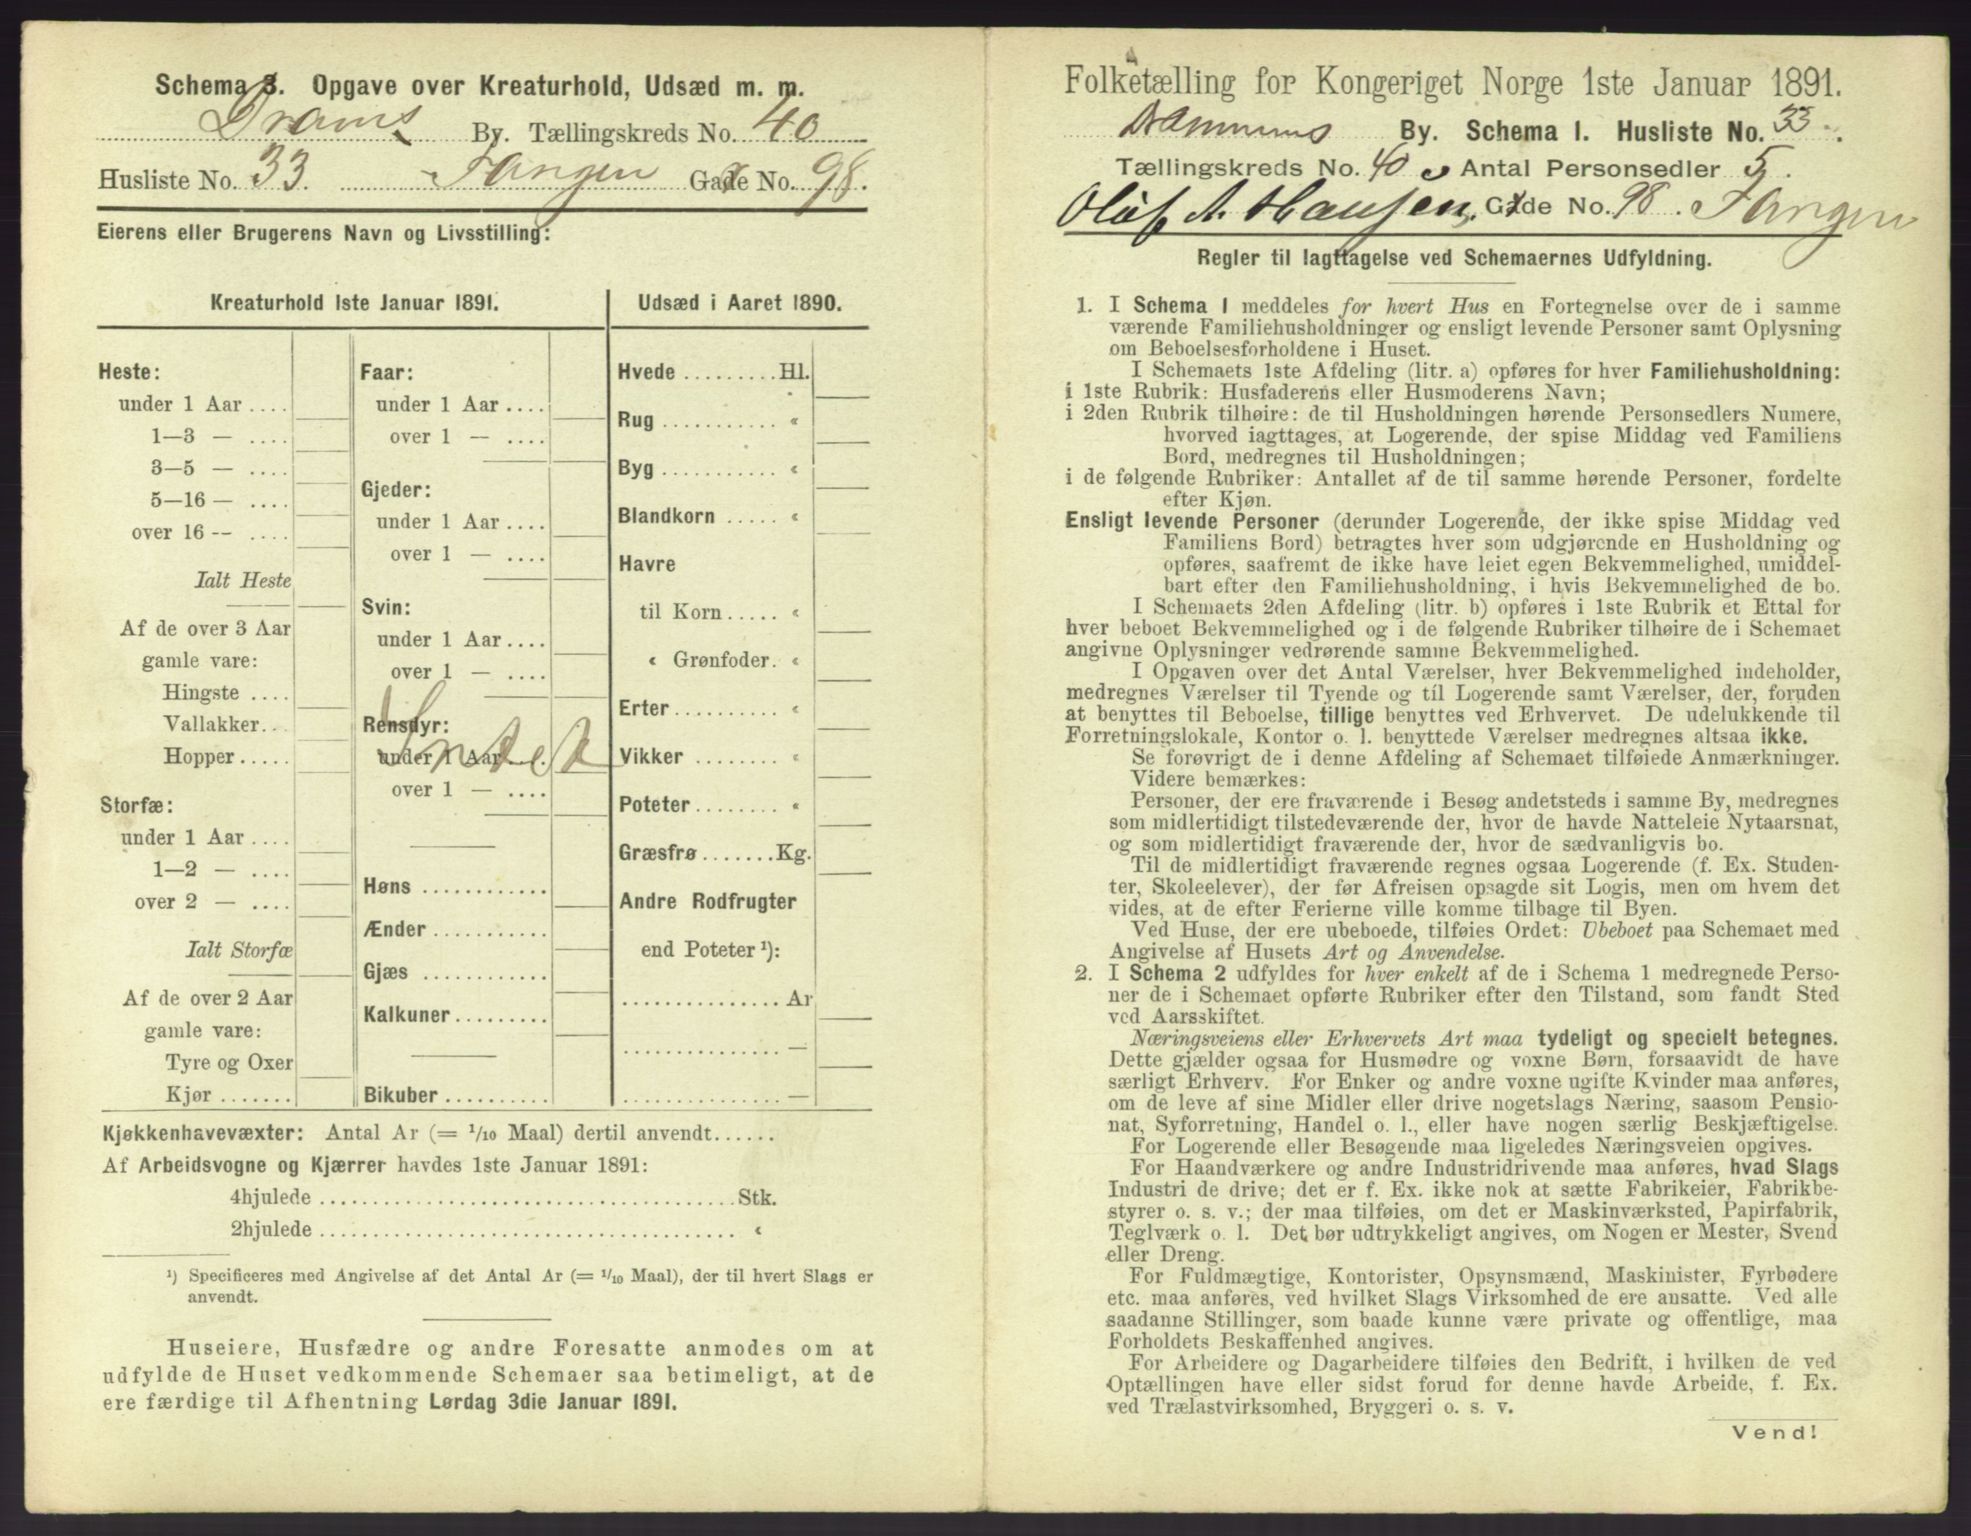 Schema 3. Opgave over Kreaturhold, Udsæd m. m.
Drams By. Tællingskreds No. 40
Husliste No. 33. Tangen Gade No. 98.
Eierens eller Brugerens Navn og Livsstilling:
Kreaturhold 1ste Januar 1891.
Heste:
under 1 Aar ....
1—3 — ....
3—5 — ....
5—16 — ....
over 16 -- ....
Ialt Heste
Af de over 3 Aar
gamle vare:
Hingste ....
Vallakker...
Hopper.....
Storfæ:
under 1 Aar ....
1—2 — ....
over 2 — ....
Ialt Storfæ
Af de over 2 Aar
gamle vare:
Tyre og Oxer
Kjør .......
Faar:
under 1 Aar ....
over 1 — ....
Gjeder:
under 1 Aar ....
over 1 — ....
Svin:
under 1 Aar ....
over 1 — ....
Rensdyr:
Intet
under 1 Aar ....
over 1 — ....
Høns ............
Ænder ...........
Gjæs ............
Kalkuner .........
Bikuber ..........
Udsæd i Aaret 1890.
Hvede .........Hl.
Rug ........... «
Byg ........... «
Blandkorn ..... «
Havre
til Korn ..... «
« Grønfoder. «
Erter .......... «
Vikker ........ «
Poteter ........ «
Græsfrø .......Kg.
Andre Rodfrugter
end Poteter ¹):
............... Ar
............... —
............... —
Kjøkkenhavevæxter: Antal Ar (= 1/10 Maal) dertil anvendt......
Af Arbeidsvogne og Kjærrer havdes 1ste Januar 1891:
4hjulede ........................................ Stk.
2hjulede ........................................ «
¹) Specificeres med Angivelse af det Antal Ar (= 1/10 Maal), der til hvert Slags er
anvendt.
Huseiere, Husfædre og andre Foresatte anmodes om at
udfylde de Huset vedkommende Schemaer saa betimeligt, at de
ere færdige til Afhentning Lørdag 3die Januar 1891.
Folketælling for Kongeriget Norge 1ste Januar 1891.
Drammens By. Schema I. Husliste No. 33.
Tællingskreds No. 40 Antal Personsedler 5.
Oluf A. Hansen, Gade No. 98. Tangen
Regler til Iagttagelse ved Schemaernes Udfyldning.
1. I Schema 1 meddeles for hvert Hus en Fortegnelse over de i samme
værende Familiehusholdninger og ensligt levende Personer samt Oplysning
om Beboelsesforholdene i Huset.
I Schemaets 1ste Afdeling (litr. a) opføres for hver Familiehusholdning:
i 1ste Rubrik: Husfaderens eller Husmoderens Navn;
i 2den Rubrik tilhøire: de til Husholdningen hørende Personsedlers Numere,
hvorved iagttages, at Logerende, der spise Middag ved Familiens
Bord, medregnes til Husholdningen;
i de følgende Rubriker: Antallet af de til samme hørende Personer, fordelte
efter Kjøn.
Ensligt levende Personer (derunder Logerende, der ikke spise Middag ved
Familiens Bord) betragtes hver som udgjørende en Husholdning og
opføres, saafremt de ikke have leiet egen Bekvemmelighed, umiddel-
bart efter den Familiehusholdning, i hvis Bekvemmelighed de bo.
I Schemaets 2den Afdeling (litr. b) opføres i 1ste Rubrik et Ettal for
hver beboet Bekvemmelighed og i de følgende Rubriker tilhøire de i Schemaet
angivne Oplysninger vedrørende samme Bekvemmelighed.
I Opgaven over det Antal Værelser, hver Bekvemmelighed indeholder,
medregnes Værelser til Tyende og til Logerende samt Værelser, der, foruden
at benyttes til Beboelse, tillige benyttes ved Erhvervet. De udelukkende til
Forretningslokale, Kontor o. l. benyttede Værelser medregnes altsaa ikke.
Se forøvrigt de i denne Afdeling af Schemaet tilføiede Anmærkninger.
Videre bemærkes:
Personer, der ere fraværende i Besøg andetsteds i samme By, medregnes
som midlertidigt tilstedeværende der, hvor de havde Natteleie Nytaarsnat,
og som midlertidigt fraværende der, hvor de sædvanligvis bo.
Til de midlertidigt fraværende regnes ogsaa Logerende (f. Ex. Studen-
ter, Skoleelever), der før Afreisen opsagde sit Logis, men om hvem det
vides, at de efter Ferierne ville komme tilbage til Byen.
Ved Huse, der ere ubeboede, tilføies Ordet: Ubeboet paa Schemaet med
Angivelse af Husets Art og Anvendelse.
2. I Schema 2 udfyldes for hver enkelt af de i Schema 1 medregnede Perso-
ner de i Schemaet opførte Rubriker efter den Tilstand, som fandt Sted
ved Aarsskiftet.
Næringsveiens eller Erhvervets Art maa tydeligt og specielt betegnes.
Dette gjælder ogsaa for Husmødre og voxne Børn, forsaavidt de have
særligt Erhverv. For Enker og andre voxne ugifte Kvinder maa anføres,
om de leve af sine Midler eller drive nogetslags Næring, saasom Pensio-
nat, Syforretning, Handel o. l., eller have nogen særlig Beskjæftigelse.
For Logerende eller Besøgende maa ligeledes Næringsveien opgives.
For Haandværkere og andre Industridrivende maa anføres, hvad Slags
Industri de drive; det er f. Ex. ikke nok at sætte Fabrikeier, Fabrikbe-
styrer o. s. v.; der maa tilføies, om det er Maskinværksted, Papirfabrik,
Teglværk o. l. Det bør udtrykkeligt angives, om Nogen er Mester, Svend
eller Dreng.
For Fuldmægtige, Kontorister, Opsynsmænd, Maskinister, Fyrbødere
etc. maa anføres, ved hvilket Slags Virksomhed de ere ansatte. Ved alle
saadanne Stillinger, som baade kunne være private og offentlige, maa
Forholdets Beskaffenhed angives.
For Arbeidere og Dagarbeidere tilføies den Bedrift, i hvilken de ved
Optællingen have eller sidst forud for denne havde Arbeide, f. Ex.
ved Trælastvirksomhed, Bryggeri o. s. v.
Vend!